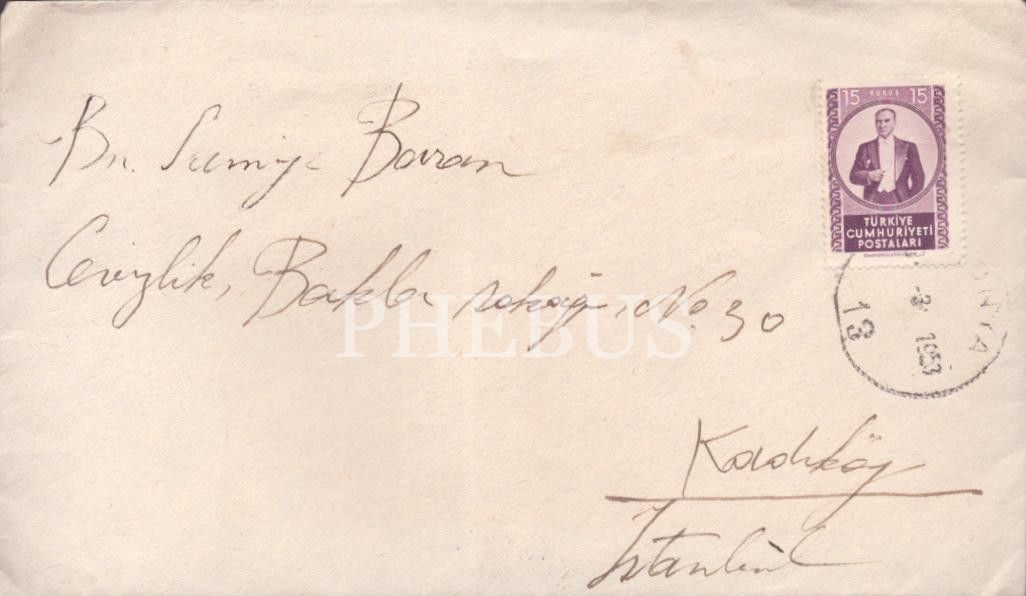 Bn. Samiye Baran
Cevizlik, Bakla sokağı No. 30
Kadıköy
İstanbul
15 KURUŞ 15
TÜRKİYE
CUMHURİYETİ
POSTALARI
13
1953
PHEBUS